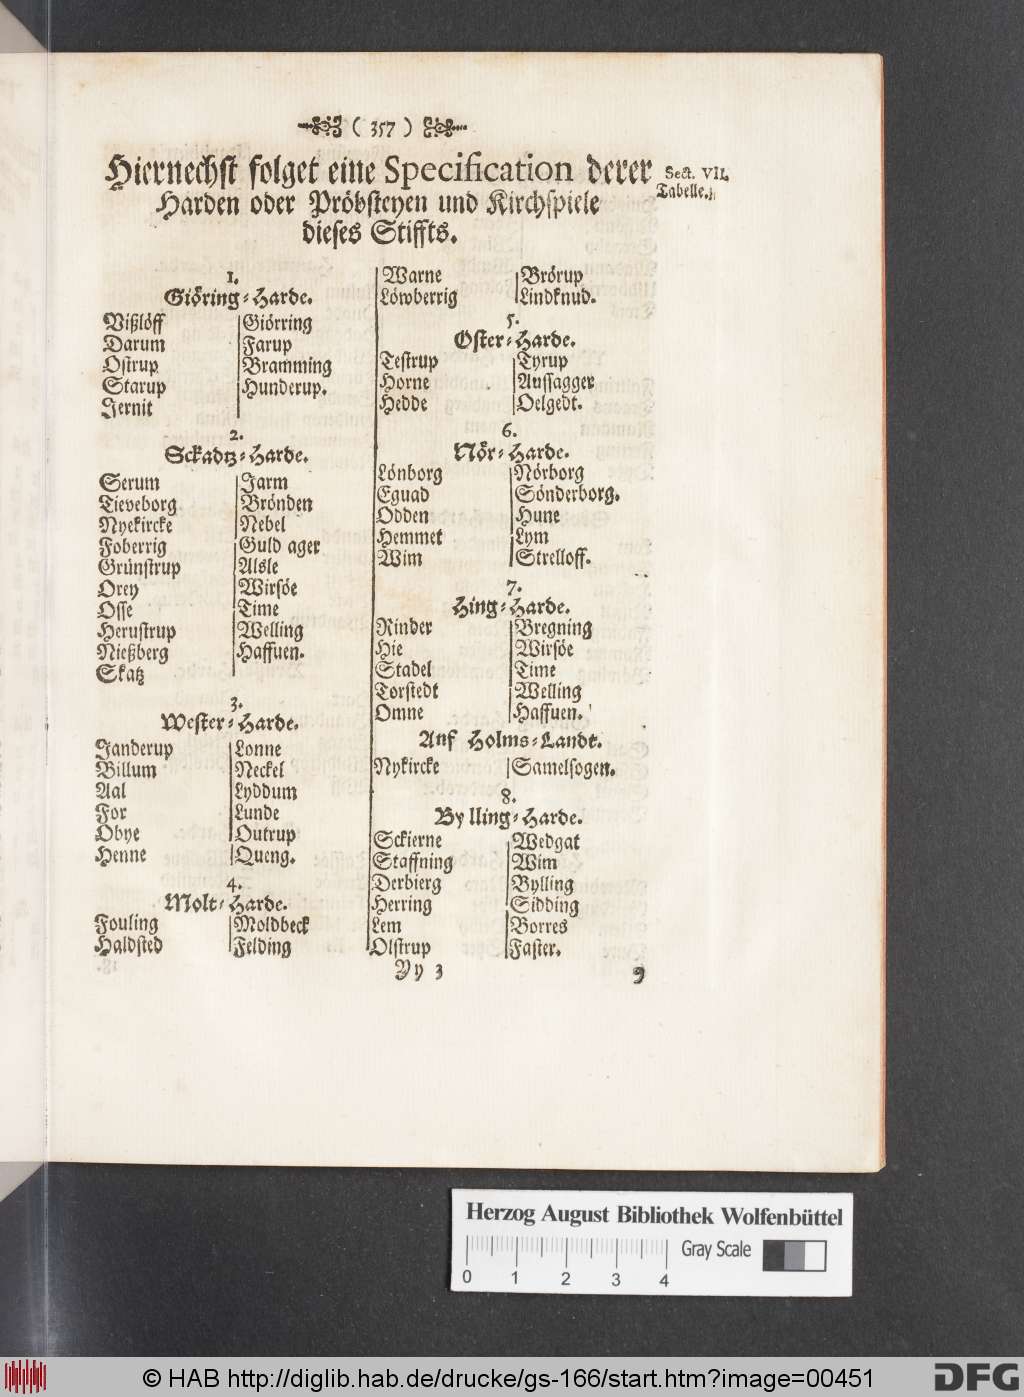 ( 357 )
Hiernechst folget eine Specification derer
Sect. VII.
Harden oder Pröbsteyen und Kirchspiele
Tabelle.
dieses Stiffts.
1.
Giöring-Harde.
Vißlöff Giörring
Darum Farup
Ostrup Bramming
Starup Hunderup.
Jernit
2.
Sckadtz-Harde.
Serum Jarm
Tieveborg Brönden
Nyekircke Nebel
Foberrig Guld ager
Grünstrup Alsle
Orey Wirsöe
Osse Time
Herustrup Welling
Nießberg Haffuen.
Skatz
3.
Wester-Harde.
Janderup Lonne
Billum Neckel
Aal Lyddum
For Lunde
Obye Outrup
Henne Queng.
4.
Molt-Harde.
Fouling Moldbeck
Haldsted Felding
Warne Brörup
Löwberrig Lindknud.
5.
Oster-Harde.
Testrup Tyrup
Horne Aussagger
Hedde Oelgedt.
6.
Nör-Harde.
Lönborg Nörborg
Eguad Sönderborg.
Odden Hune
Hemmet Lym
Wim Strelloff.
7.
Hing-Harde.
Rinder Bregning
Hie Wirsöe
Stadel Time
Torstedt Welling
Omne Haffuen.
Auf Holms-Landt.
Nykircke Samelsogen.
8.
Bylling-Harde.
Sckierne Wedgat
Staffning Wim
Derbierg Bylling
Herring Sidding
Lem Borres
Olstrup Faster.
Yy 3
9
Herzog August Bibliothek Wolfenbüttel
Gray Scale
0 1 2 3 4
© HAB http://diglib.hab.de/drucke/gs-166/start.htm?image=00451
DFG